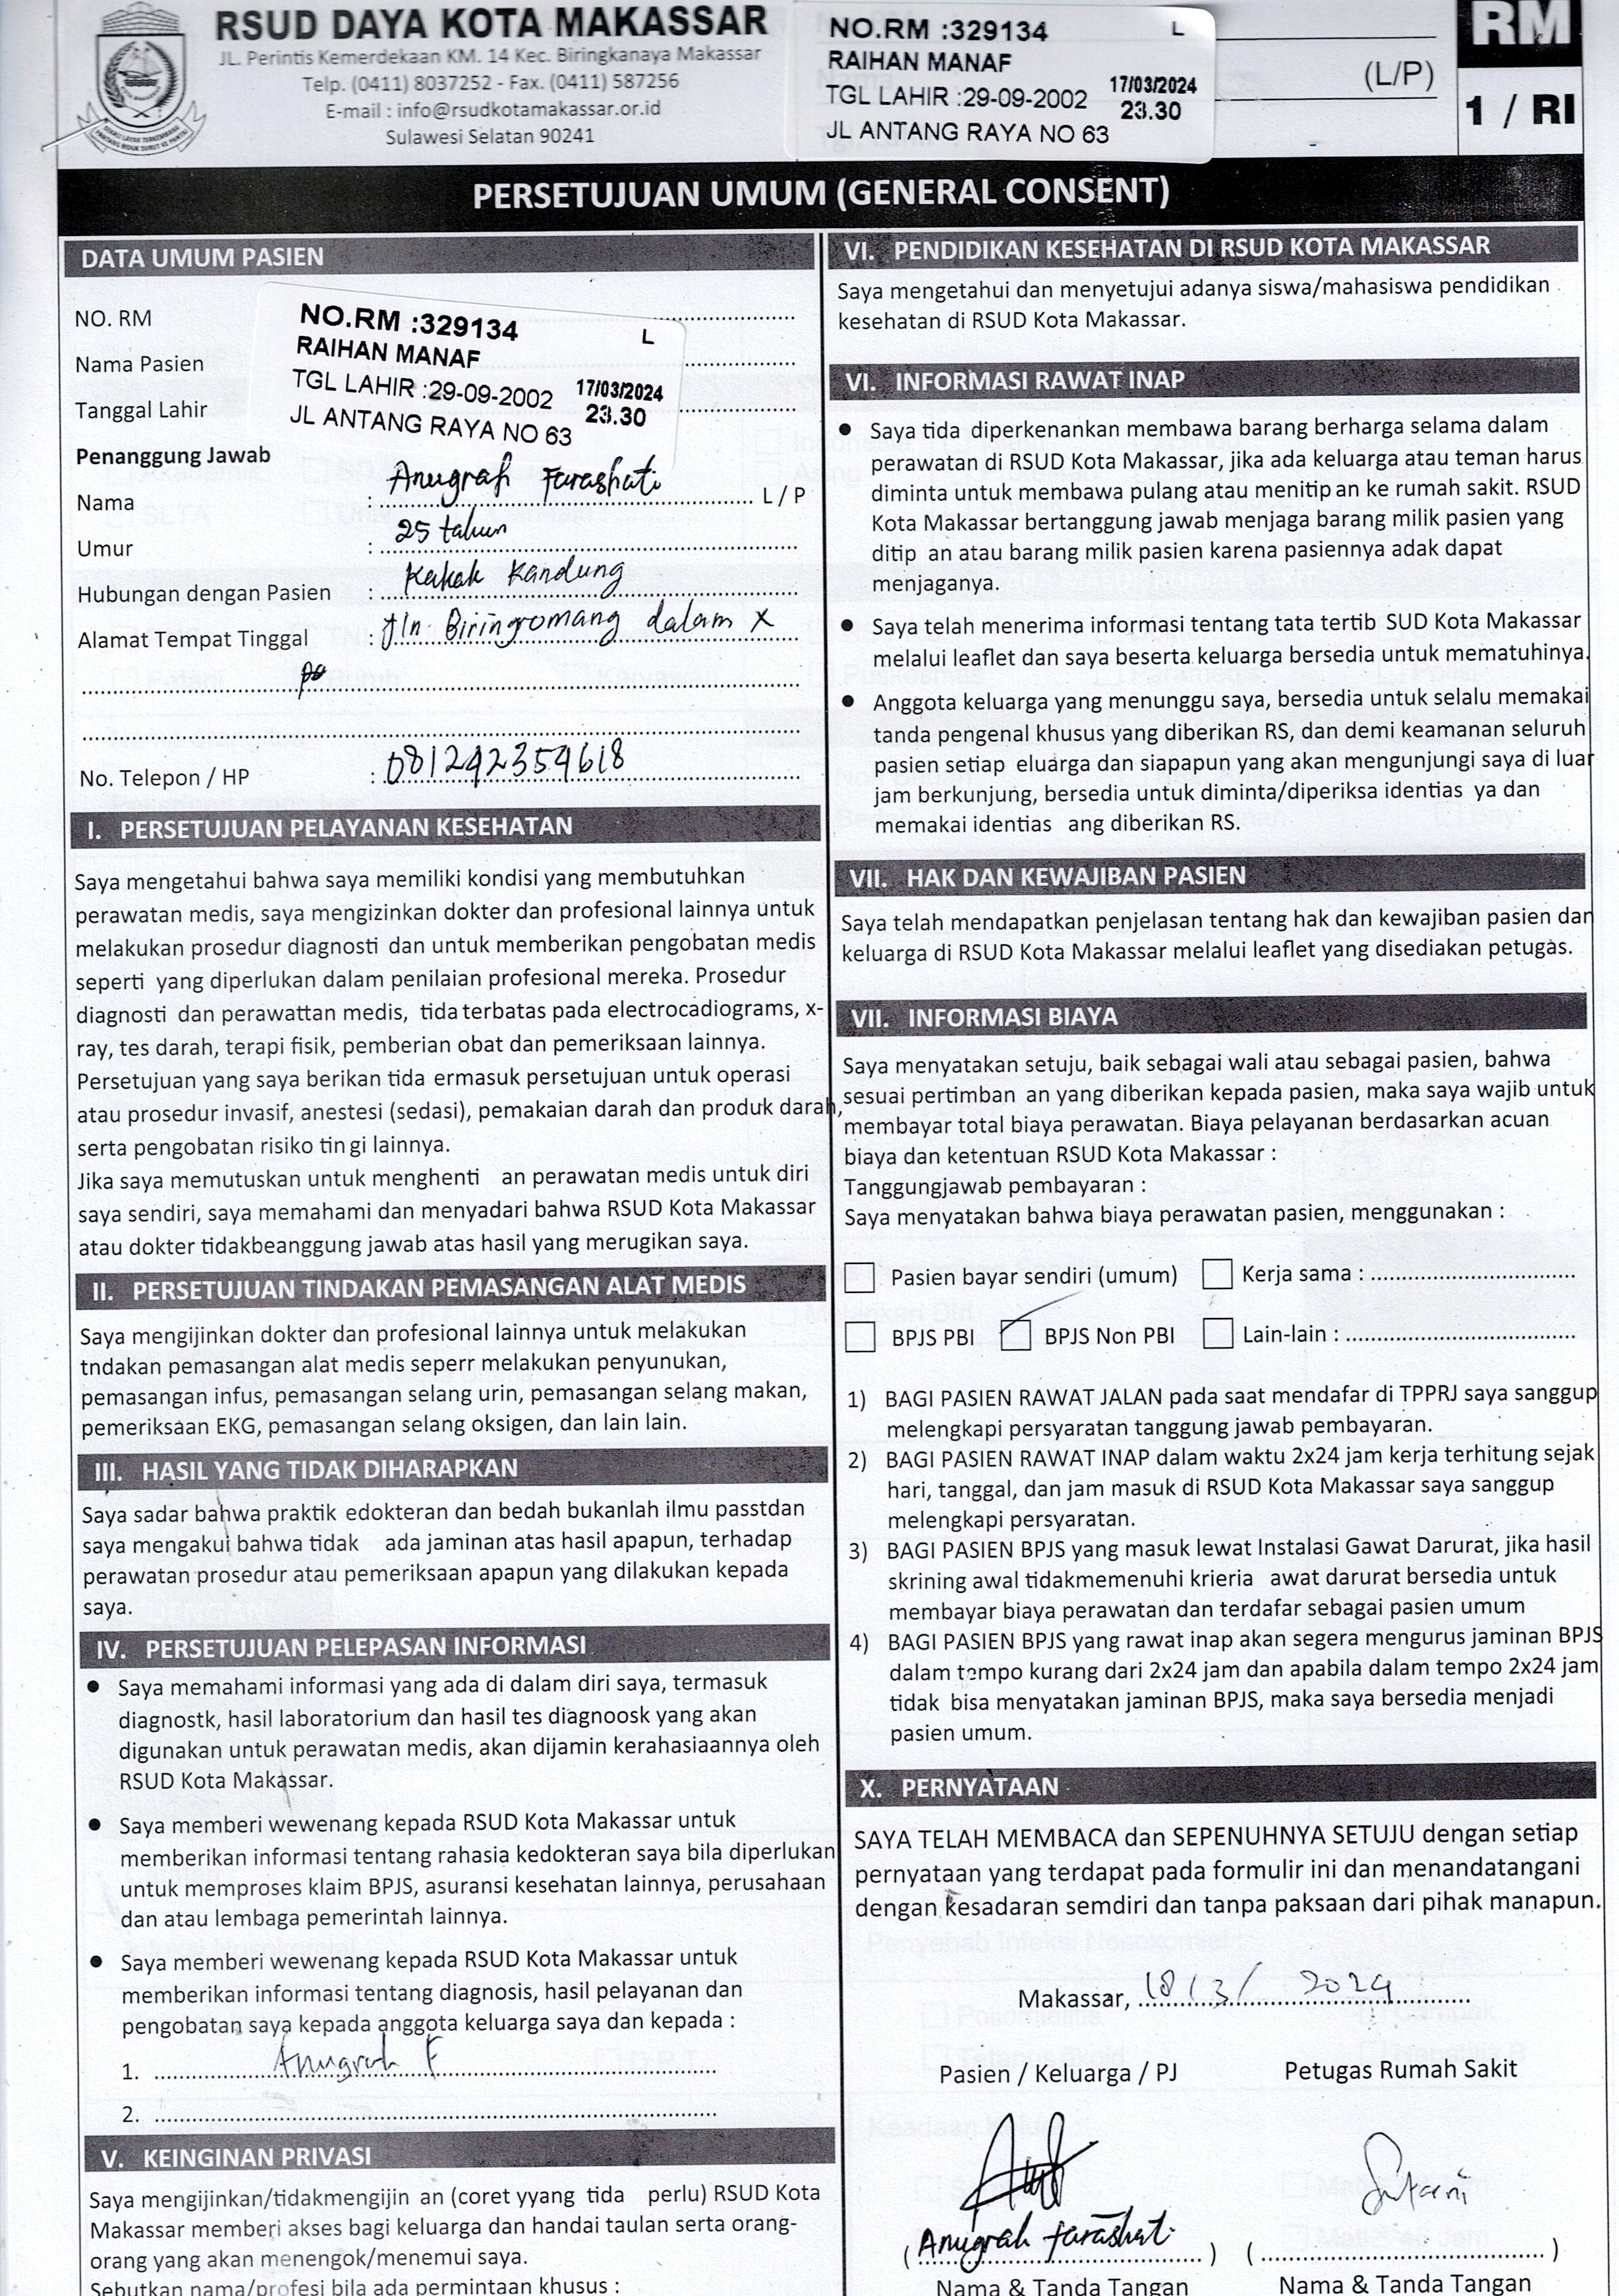 RSUD DAYA KOTA MAKASSAR
JL. Perintis Kemerdekaan KM. 14 Kec. Biringkanaya Makassar
Telp. (0411) 8037252 - Fax. (0411) 587256
E-mail : info@rsudkotamakassar.or.id
Sulawesi Selatan 90241
NO.RM :329134 L
RAIHAN MANAF
TGL LAHIR :29-09-2002 17/03/2024
23.30
JL ANTANG RAYA NO 63
(L/P)
RM
1 / RI
PERSETUJUAN UMUM (GENERAL CONSENT)
DATA UMUM PASIEN
NO. RM
Nama Pasien
Tanggal Lahir
NO.RM :329134 L
RAIHAN MANAF
TGL LAHIR :29-09-2002 17/03/2024
23.30
JL ANTANG RAYA NO 63
Penanggung Jawab
Nama : Anugrah Farashati L / P
Umur : 25 tahun
Hubungan dengan Pasien : Kakak Kandung
Alamat Tempat Tinggal : Jln. Biringromang dalam X
No. Telepon / HP : 081242354618
I. PERSETUJUAN PELAYANAN KESEHATAN
Saya mengetahui bahwa saya memiliki kondisi yang membutuhkan
perawatan medis, saya mengizinkan dokter dan profesional lainnya untuk
melakukan prosedur diagnosti dan untuk memberikan pengobatan medis
seperti yang diperlukan dalam penilaian profesional mereka. Prosedur
diagnosti dan perawattan medis, tida terbatas pada electrocadiograms, x-
ray, tes darah, terapi fisik, pemberian obat dan pemeriksaan lainnya.
Persetujuan yang saya berikan tida ermasuk persetujuan untuk operasi
atau prosedur invasif, anestesi (sedasi), pemakaian darah dan produk darah,
serta pengobatan risiko tin gi lainnya.
Jika saya memutuskan untuk menghenti an perawatan medis untuk diri
saya sendiri, saya memahami dan menyadari bahwa RSUD Kota Makassar
atau dokter tidakbeanggung jawab atas hasil yang merugikan saya.
II. PERSETUJUAN TINDAKAN PEMASANGAN ALAT MEDIS
Saya mengijinkan dokter dan profesional lainnya untuk melakukan
tndakan pemasangan alat medis seperr melakukan penyunukan,
pemasangan infus, pemasangan selang urin, pemasangan selang makan,
pemeriksaan EKG, pemasangan selang oksigen, dan lain lain.
III. HASIL YANG TIDAK DIHARAPKAN
Saya sadar bahwa praktik edokteran dan bedah bukanlah ilmu passtdan
saya mengakui bahwa tidak ada jaminan atas hasil apapun, terhadap
perawatan prosedur atau pemeriksaan apapun yang dilakukan kepada
saya.
IV. PERSETUJUAN PELEPASAN INFORMASI
● Saya memahami informasi yang ada di dalam diri saya, termasuk
diagnostk, hasil laboratorium dan hasil tes diagnoosk yang akan
digunakan untuk perawatan medis, akan dijamin kerahasiaannya oleh
RSUD Kota Makassar.
● Saya memberi wewenang kepada RSUD Kota Makassar untuk
memberikan informasi tentang rahasia kedokteran saya bila diperlukan
untuk memproses klaim BPJS, asuransi kesehatan lainnya, perusahaan
dan atau lembaga pemerintah lainnya.
● Saya memberi wewenang kepada RSUD Kota Makassar untuk
memberikan informasi tentang diagnosis, hasil pelayanan dan
pengobatan saya kepada anggota keluarga saya dan kepada :
1. Anugrah F
2.
V. KEINGINAN PRIVASI
Saya mengijinkan/tidakmengijin an (coret yyang tida perlu) RSUD Kota
Makassar memberi akses bagi keluarga dan handai taulan serta orang-
orang yang akan menengok/menemui saya.
Sebutkan nama/profesi bila ada permintaan khusus :
VI. PENDIDIKAN KESEHATAN DI RSUD KOTA MAKASSAR
Saya mengetahui dan menyetujui adanya siswa/mahasiswa pendidikan
kesehatan di RSUD Kota Makassar.
VI. INFORMASI RAWAT INAP
● Saya tida diperkenankan membawa barang berharga selama dalam
perawatan di RSUD Kota Makassar, jika ada keluarga atau teman harus
diminta untuk membawa pulang atau menitip an ke rumah sakit. RSUD
Kota Makassar bertanggung jawab menjaga barang milik pasien yang
ditip an atau barang milik pasien karena pasiennya adak dapat
menjaganya.
● Saya telah menerima informasi tentang tata tertib SUD Kota Makassar
melalui leaflet dan saya beserta keluarga bersedia untuk mematuhinya.
● Anggota keluarga yang menunggu saya, bersedia untuk selalu memakai
tanda pengenal khusus yang diberikan RS, dan demi keamanan seluruh
pasien setiap eluarga dan siapapun yang akan mengunjungi saya di luar
jam berkunjung, bersedia untuk diminta/diperiksa identias ya dan
memakai identias ang diberikan RS.
VII. HAK DAN KEWAJIBAN PASIEN
Saya telah mendapatkan penjelasan tentang hak dan kewajiban pasien dan
keluarga di RSUD Kota Makassar melalui leaflet yang disediakan petugas.
VII. INFORMASI BIAYA
Saya menyatakan setuju, baik sebagai wali atau sebagai pasien, bahwa
sesuai pertimban an yang diberikan kepada pasien, maka saya wajib untuk
membayar total biaya perawatan. Biaya pelayanan berdasarkan acuan
biaya dan ketentuan RSUD Kota Makassar :
Tanggungjawab pembayaran :
Saya menyatakan bahwa biaya perawatan pasien, menggunakan :
Pasien bayar sendiri (umum) Kerja sama :
BPJS PBI BPJS Non PBI Lain-lain :
1) BAGI PASIEN RAWAT JALAN pada saat mendafar di TPPRJ saya sanggup
melengkapi persyaratan tanggung jawab pembayaran.
2) BAGI PASIEN RAWAT INAP dalam waktu 2x24 jam kerja terhitung sejak
hari, tanggal, dan jam masuk di RSUD Kota Makassar saya sanggup
melengkapi persyaratan.
3) BAGI PASIEN BPJS yang masuk lewat Instalasi Gawat Darurat, jika hasil
skrining awal tidakmemenuhi krieria awat darurat bersedia untuk
membayar biaya perawatan dan terdafar sebagai pasien umum
4) BAGI PASIEN BPJS yang rawat inap akan segera mengurus jaminan BPJS
dalam tempo kurang dari 2x24 jam dan apabila dalam tempo 2x24 jam
tidak bisa menyatakan jaminan BPJS, maka saya bersedia menjadi
pasien umum.
X. PERNYATAAN
SAYA TELAH MEMBACA dan SEPENUHNYA SETUJU dengan setiap
pernyataan yang terdapat pada formulir ini dan menandatangani
dengan kesadaran semdiri dan tanpa paksaan dari pihak manapun.
Makassar, 18/3/ 2024
Pasien / Keluarga / PJ Petugas Rumah Sakit
(Anugrah farashati) ( )
Nama & Tanda Tangan Nama & Tanda Tangan